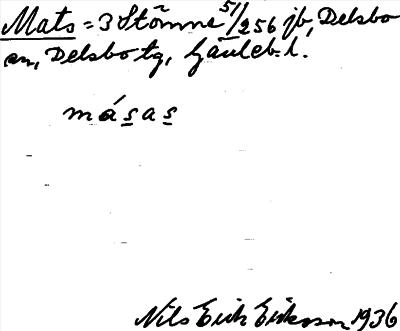 Mats = 3 Stömne 5/256 jb, Delsbo
sn, Delsbo tg, Gävleb. l.
másas
Nils Erik Eriksson 1936